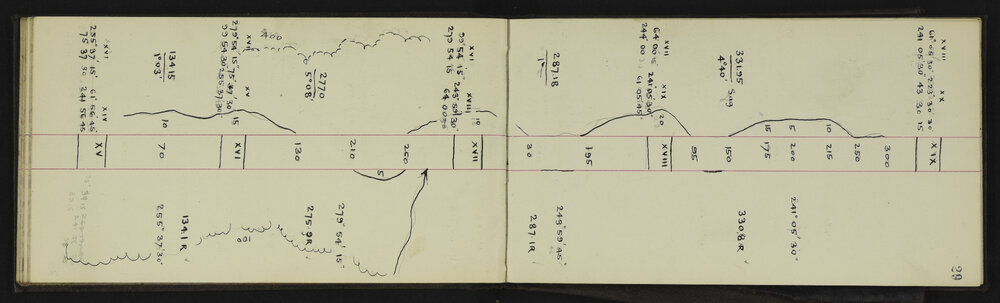 XVIII XX
61° 05' 30" 223° 30' 30"
241 05 30 43 30 15
331.95
4° 40' Sag
XVII XIX
64 00 15 241° 05' 30"
244 00 61 05 45
287.18
1°
XVI XVIII
99° 54' 15" 243° 59' 30"
279 54 15 64 00 30
2770
5° 08'
400
XVII XV
279° 54' 15" 75° 37' 30"
99 54 30 255 37 30
134.15
1° 03'
XVI XIV
255° 37' 15" 61° 56' 45"
75 37 30 241 56 45
10
15
10
20
15
5
10
XV
70
XVI
130
210
250
XVII
30
195
XVIII
95
150
175
200
215
250
300
XIX
5
10
134.1 R
255° 37' 30"
279° 54' 15"
275.9 R
249° 59' 45"
287.1 R
241° 05' 30"
330.8 R
29